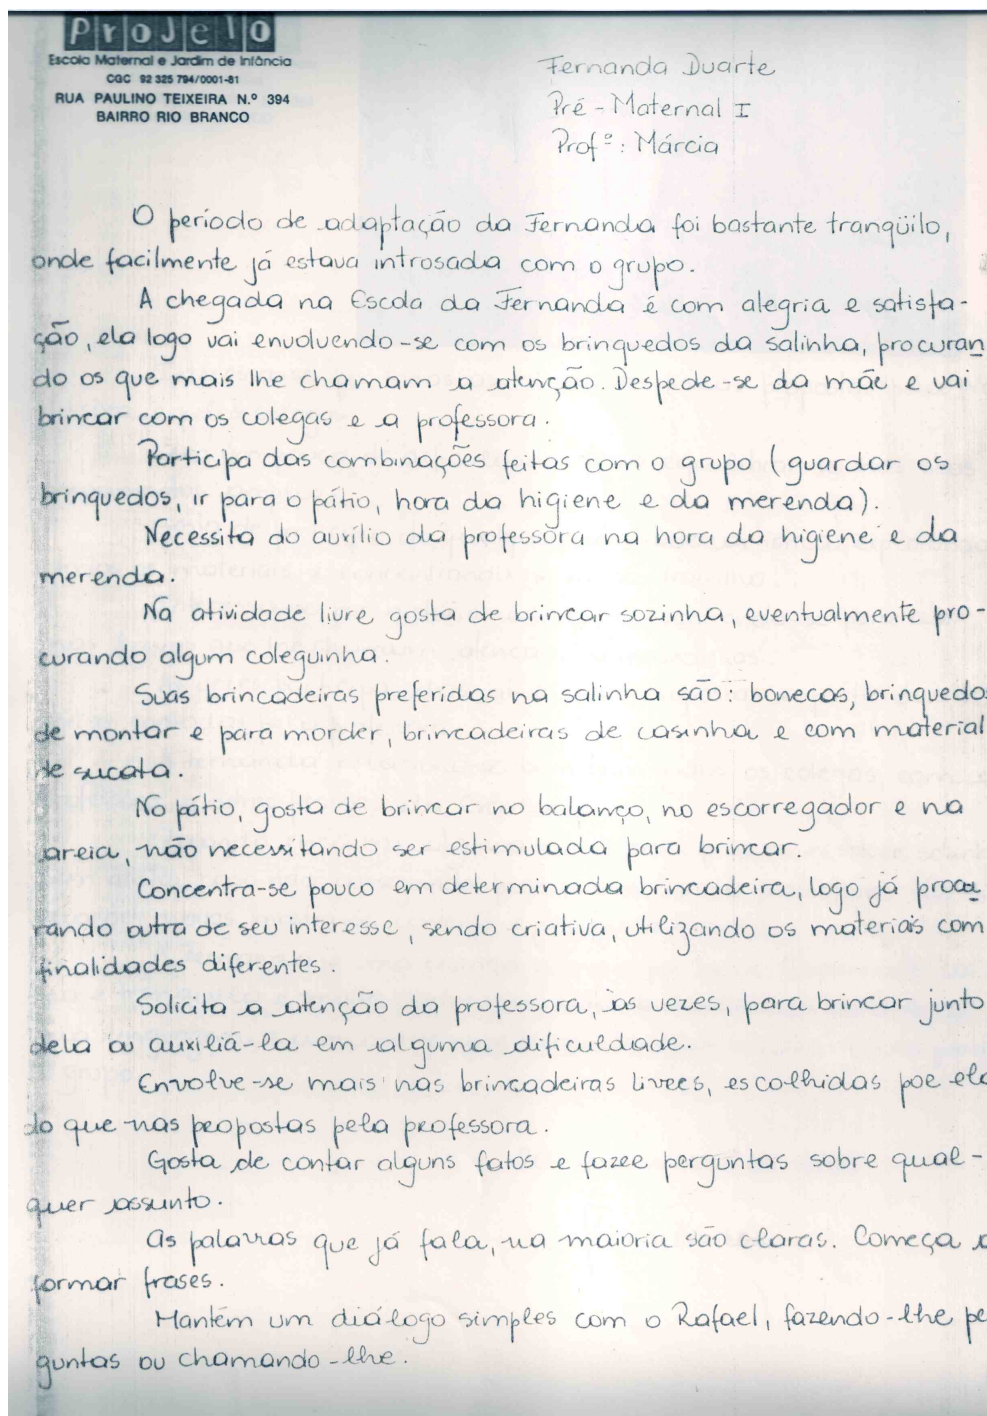 Projeto
Escola Maternal e Jardim de Infância
CGC 92 325 794/0001-81
RUA PAULINO TEIXEIRA N.º 394
BAIRRO RIO BRANCO
Fernanda Duarte
Pré - Maternal I
Profª: Márcia
O período de adaptação da Fernanda foi bastante tranqüilo,
onde facilmente já estava introsada com o grupo.
A chegada na Escola da Fernanda é com alegria e satisfa-
ção, ela logo vai envolvendo-se com os brinquedos da salinha, procuran
do os que mais lhe chamam a atenção. Despede-se da mãe e vai
brincar com os colegas e a professora.
Participa das combinações feitas com o grupo (guardar os
brinquedos, ir para o pátio, hora da higiene e da merenda).
Necessita do auxílio da professora na hora da higiene e da
merenda.
Na atividade livre gosta de brincar sozinha, eventualmente pro-
curando algum coleguinha.
Suas brincadeiras preferidas na salinha são: bonecas, brinquedos
de montar e para morder, brincadeiras de casinha e com material
de sucata.
No pátio, gosta de brincar no balanço, no escorregador e na
areia, não necessitando ser estimulada para brincar.
Concentra-se pouco em determinada brincadeira, logo já procu
rando outra de seu interesse, sendo criativa, utilizando os materiais com
finalidades diferentes.
Solicita a atenção da professora, às vezes, para brincar junto
dela ou auxiliá-la em alguma dificuldade.
Envolve-se mais nas brincadeiras livres, escolhidas por ela
do que nas propostas pela professora.
Gosta de contar alguns fatos e fazer perguntas sobre qual-
quer assunto.
As palavras que já fala, na maioria são claras. Começa a
formar frases.
Mantém um diálogo simples com o Rafael, fazendo-lhe pe
guntas ou chamando-lhe.